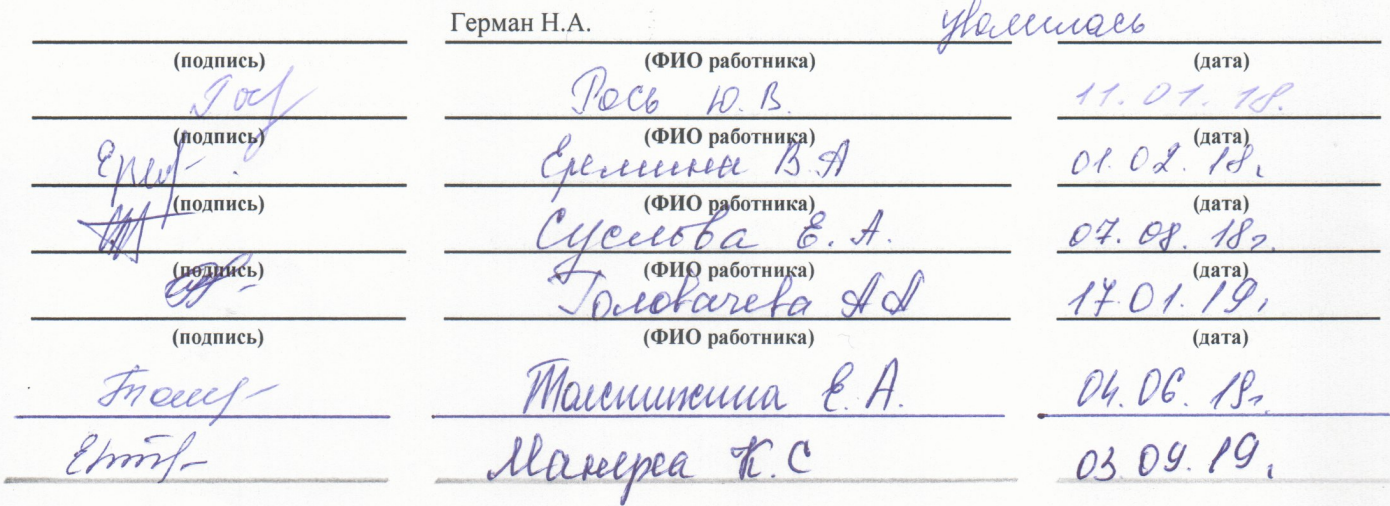 Герман Н.А. уволилась
(подпись) (ФИО работника) (дата)
Рось Ю.В. 11.01.18.
(подпись) (ФИО работника) (дата)
Еремина В.А 01.02.18г.
(подпись) (ФИО работника) (дата)
Суслова Е.А. 07.08.18г.
(подпись) (ФИО работника) (дата)
Головачева АА 17.01.19г
(подпись) (ФИО работника) (дата)
Е.А. 04.06.19г.
К.С 03.09.19г